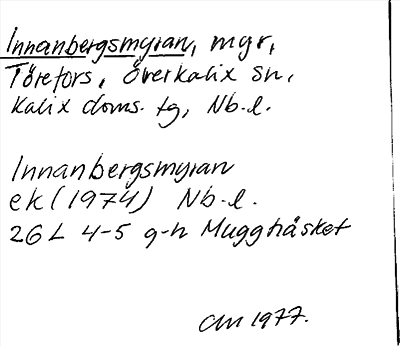 Innanbergsmyran, myr,
Törefors, Överkalix sn,
Kalix doms. tg, Nb.l.
Innanbergsmyran
ek (1974) Nb.l.
26L 4-5 g-h Muggträsket
1977.